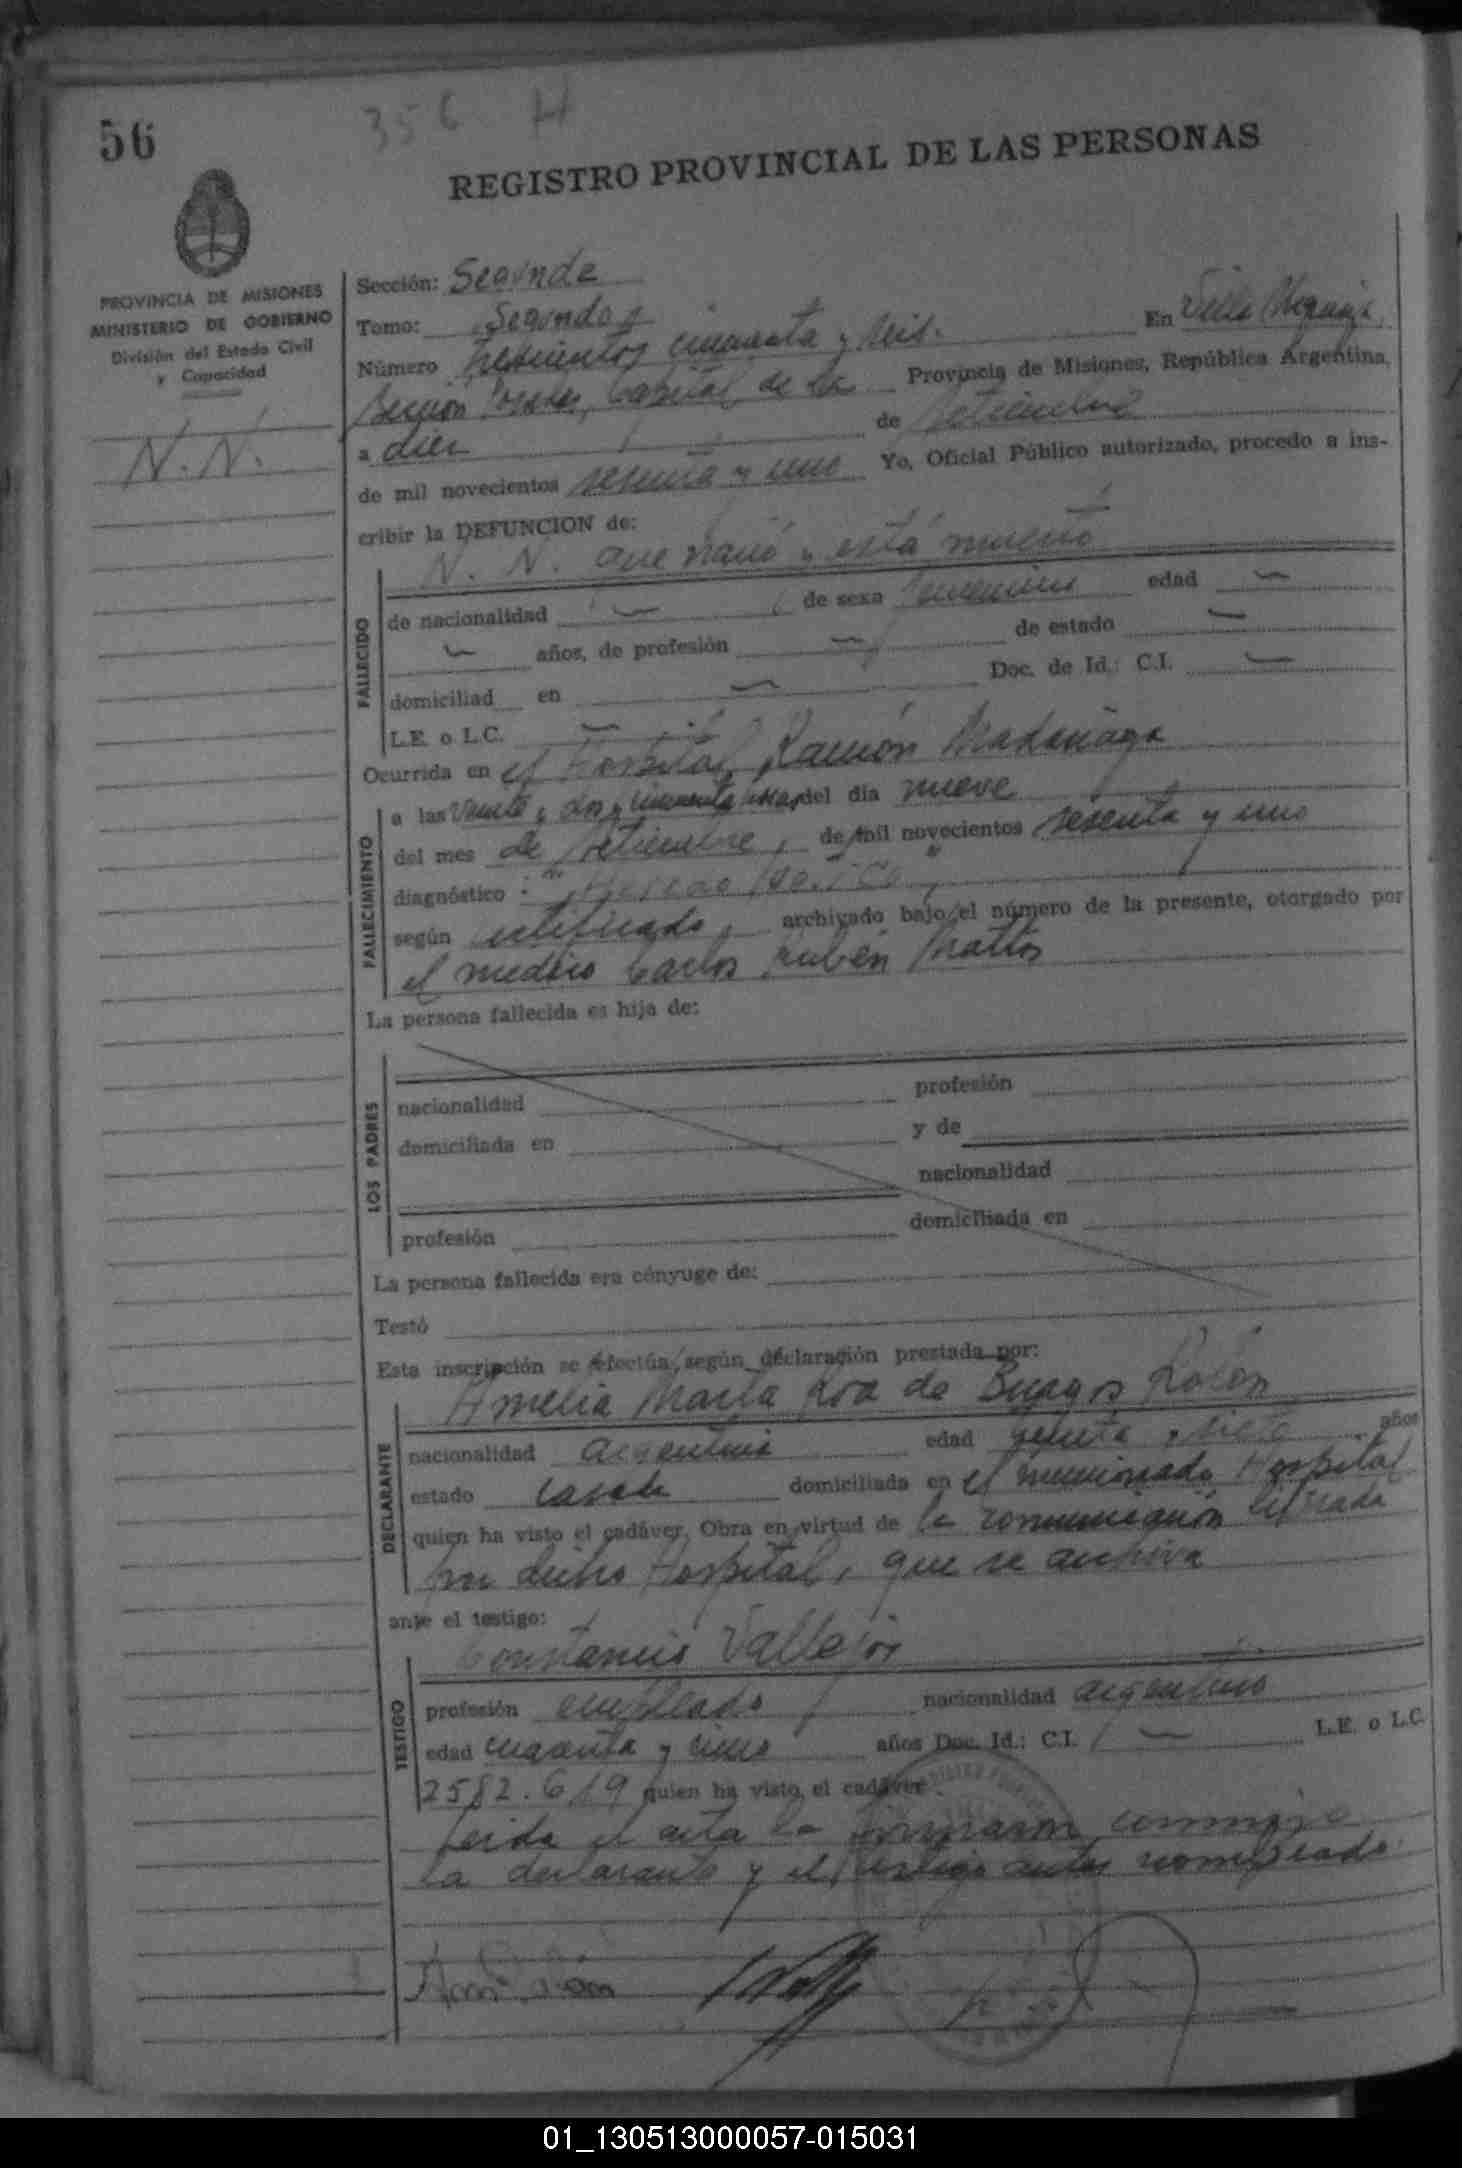 56
356 H
REGISTRO PROVINCIAL DE LAS PERSONAS
PROVINCIA DE MISIONES
MINISTERIO DE GOBIERNO
División del Estado Civil
y Capacidad
N. N.
Sección: Segunda
Tomo: Segundo
Número trescientos cincuenta y seis. En Villa
Posadas, Capital de la Provincia de Misiones, República Argentina,
a diez de setiembre
de mil novecientos sesenta y uno Yo, Oficial Público autorizado, procedo a ins-
cribir la DEFUNCION de:
N. N. que nació y está muerto
FALLECIDO
de nacionalidad — de sexo femenino edad —
— años, de profesión — de estado —
domiciliad en — Doc. de Id.: C.I. —
L.E. o L.C. —
Ocurrida en el Hospital Ramón Madariaga
FALLECIMIENTO
a las veinte y dos y cincuenta horas del día nueve
del mes de setiembre, de mil novecientos sesenta y uno
diagnóstico:
según certificado, archivado bajo el número de la presente, otorgado por
el medico Carlos Rubén Mattos
La persona fallecida es hija de:
LOS PADRES
nacionalidad profesión
domiciliada en y de
nacionalidad
profesión domiciliada en
La persona fallecida era cónyuge de:
Testó
Esta inscripción se efectúa, según declaración prestada por:
Amelia Marta Roa de Burgos Rolón
DECLARANTE
nacionalidad argentina edad treinta y siete años
estado casada domiciliada en el mencionado Hospital
quien ha visto el cadáver. Obra en virtud de la comunicación
por dicho Hospital, que se archiva
ante el testigo:
Constancio Vallejos
TESTIGO
profesión empleado nacionalidad argentino
edad cuarenta y cinco años Doc. Id.: C.I. — L.E. o L.C.
2582.619 quien ha visto el cadáver.
Leida el acta la firmaron conmigo
la declarante y el testigo antes nombrado.
01_130513000057-015031